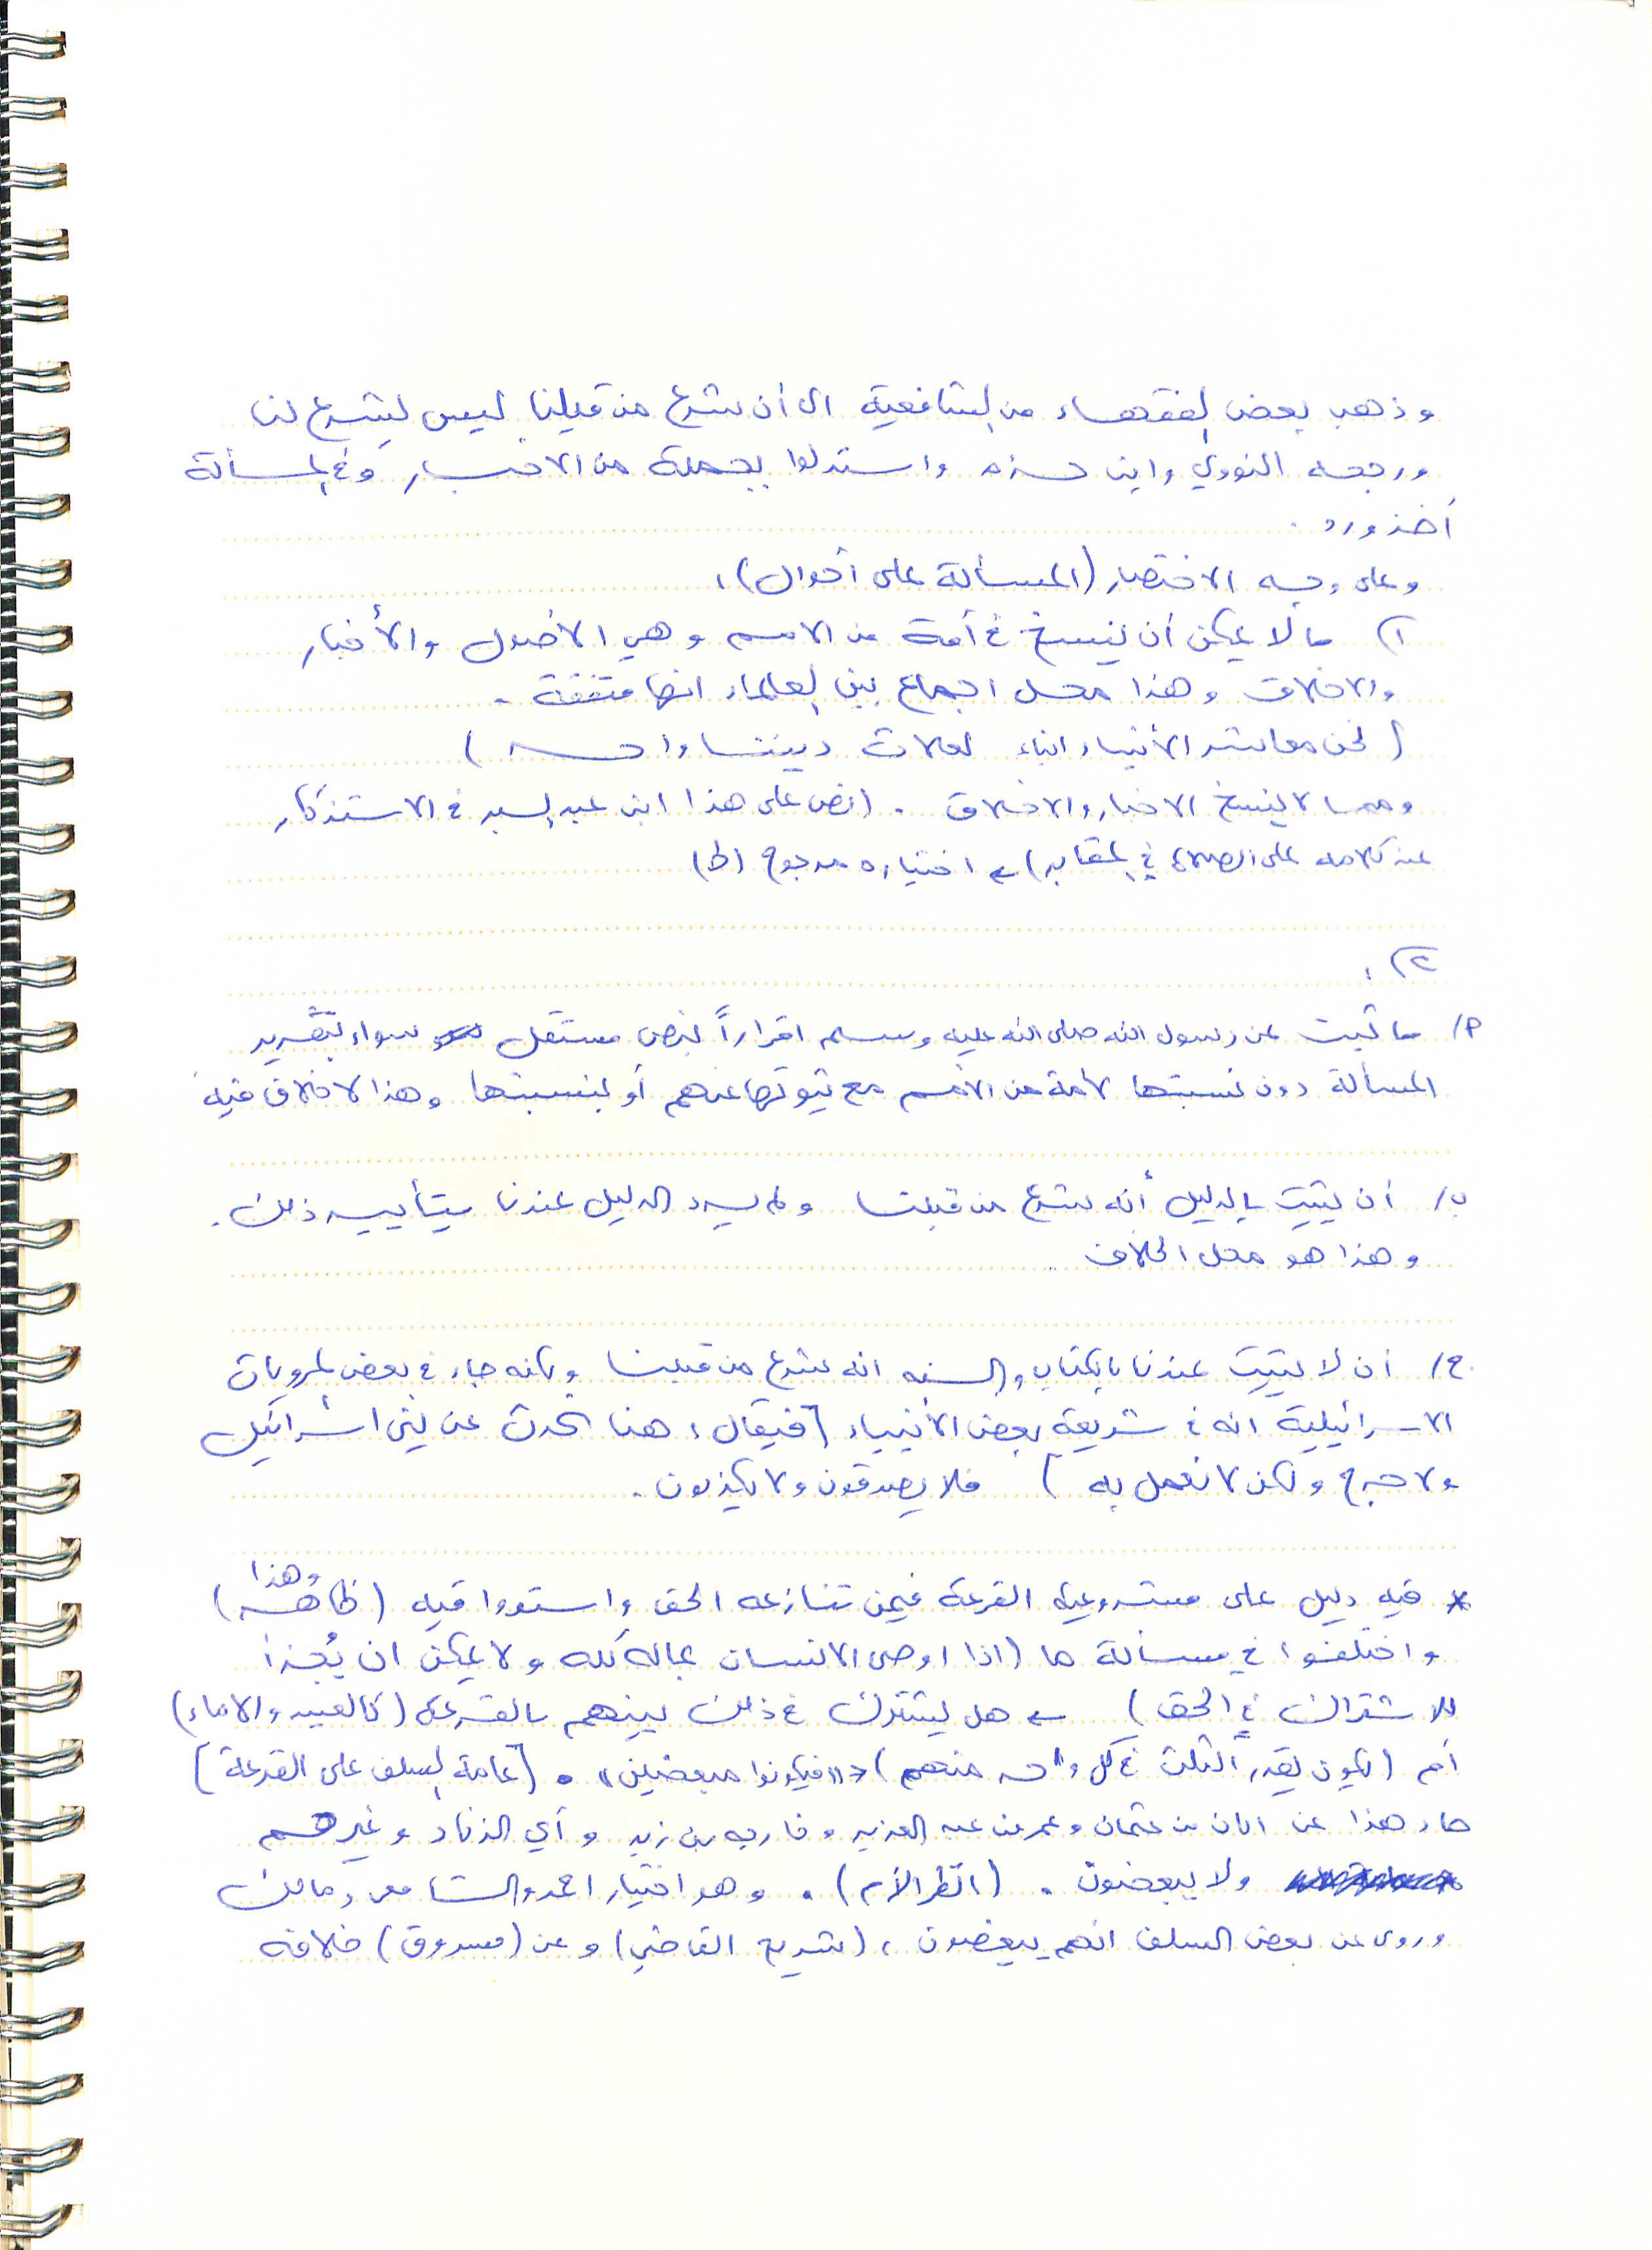 وذهب بعض الفقهاء من الشافعية الى أن شرع من قبلنا ليس بشرع لنا
ورجحه النووي وابن حزم واستدلوا بجملة من الاخبار وفي المسألة
أخذ ورد .
وعلى وجه الاختصار (المسألة على أحوال) :
١) ما لا يمكن أن ينسخ في أمة من الامم وهي الاصول والأخبار
والاخلاق وهذا محل اجماع بين العلماء انها متفقة .
( نحن معاشر الأنبياء ابناء لعلات ديننا واحد )
ومما لا ينسخ الاخبار والاخلاق . (نص على هذا ابن عبد البر في الاستذكار
عند كلامه على الصلاة في المقابر) ← اختياره مرجوح (ط)
٢) :
أ/ ما ثبت عن رسول الله صلى الله عليه وسلم اقراراً بنص مستقل سواء بتقرير
المسألة دون نسبتها لأمة من الأمم مع ثبوتها عنهم أو بنسبتها وهذا لا خلاف فيه
ب/ أن يثبت بالدليل أنه شرع من قبلنا ولم يرد الدليل عندنا بتأييد ذلك .
وهذا هو محل الخلاف
ج/ أن لا يثبت عندنا بالكتاب والسنه انه شرع من قبلنا ولكنه جاء في بعض المرويات
الاسرائيلية انه في شريعة بعض الأنبياء [فيقال : هنا نحدث عن بني اسرائيل
ولا حرج ولكن لا نعمل به ) فلا يصدقون ولا يكذبون .
* فيه دليل على مشروعية القرعة فيمن تنازعه الحق واستووا فيه (وهذا ظاهر)
واختلفوا في مسألة ما (اذا اوصى الانسان بماله كله ولا يمكن ان يُجزأ
للاشتراك في الحق) ← هل يشترك في ذلك بينهم بالقرعة (كالعبيد والاماء)
أم (يكون بقدر الثلث في كل واحد منهم) «فيكونوا مبعضين» . [عامة السلف على القرعة]
جاء هذا عن ابان بن عثمان وعمر بن عبد العزيز وخارجه بن زيد وأبي الزناد وغيرهم
ولا يبعضون . (انظر الأم) . وهو اختيار احمد والشافعي ومالك
وروى عن بعض السلف انهم يبعضون ، (شريح القاضي) وعن (مسروق) خلافه